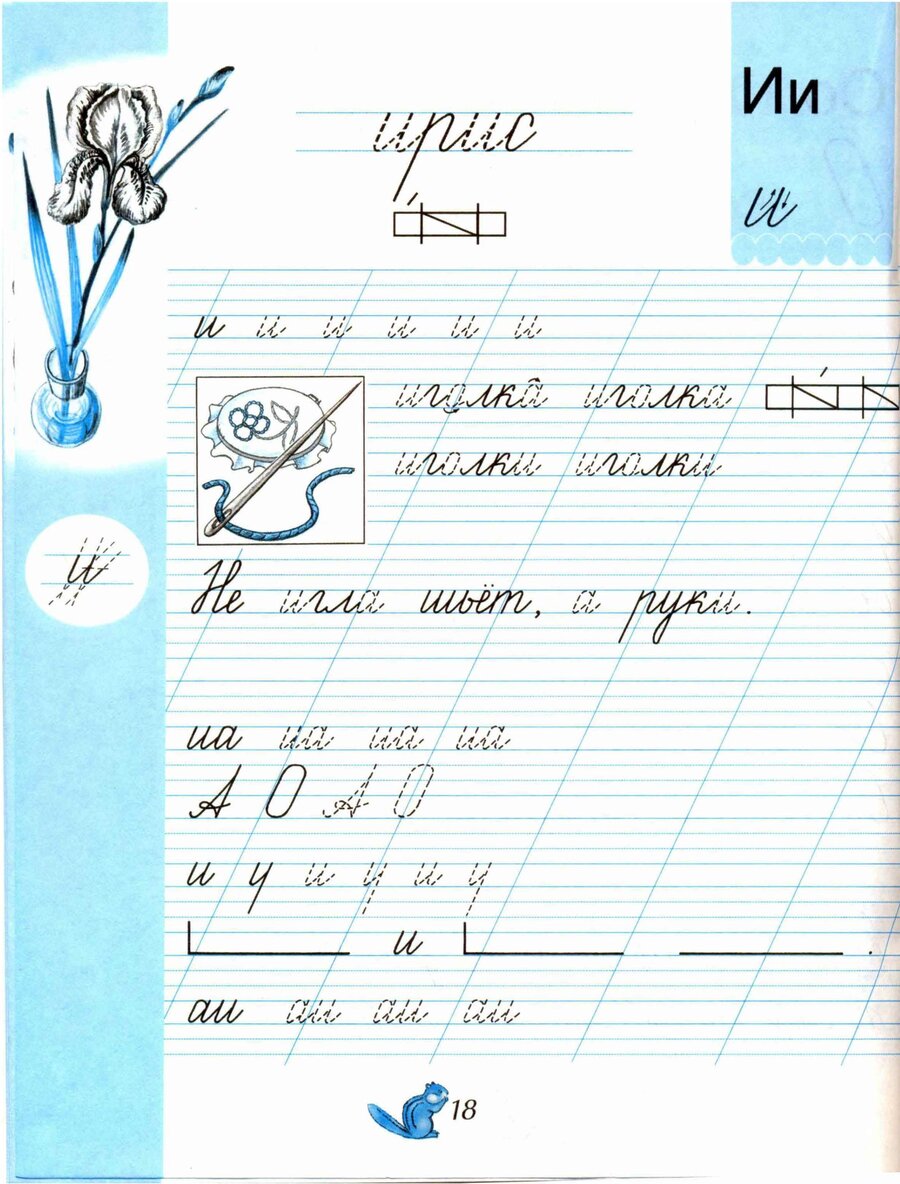 Ии
ирис
и
и и и и и и
иголка иголка
иголки иголки
и
Не игла шьёт, а руки.
иа иа иа иа
А О А О
и у и у и у
и .
аи аи аи аи
18